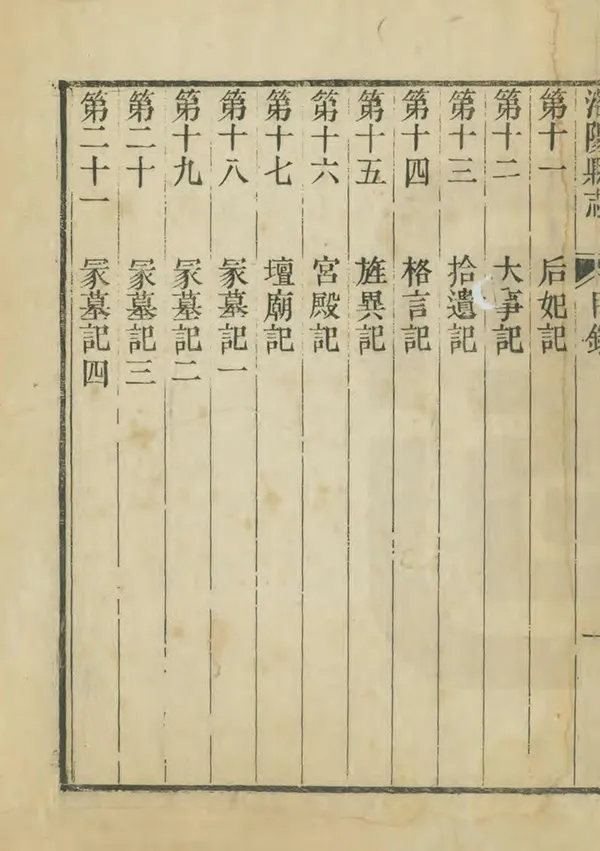 洛陽縣志 目錄 一
第十一 后妃記
第十二 大事記
第十三 拾遺記
第十四 格言記
第十五 旌異記
第十六 宮殿記
第十七 壇廟記
第十八 冡墓記一
第十九 冡墓記二
第二十 冡墓記三
第二十一 冡墓記四